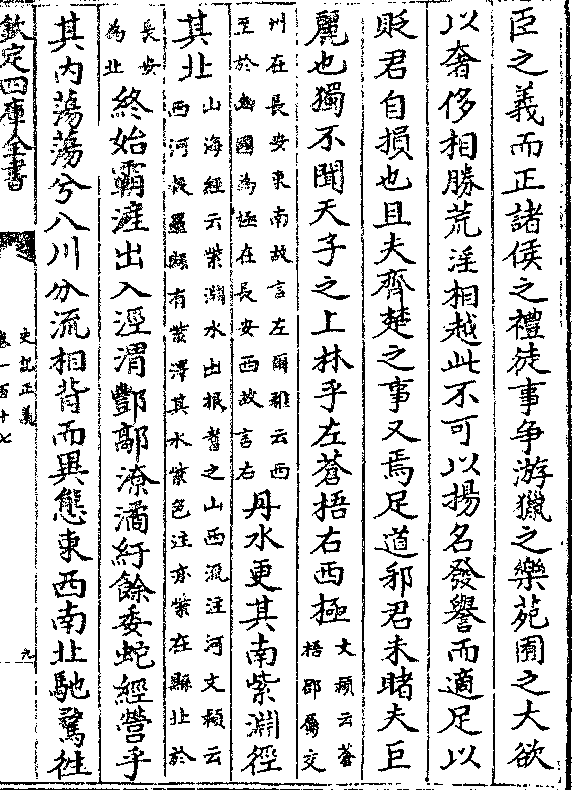 臣之義而正諸侯之禮徒事爭游獵之樂苑囿之大欲
以奢侈相勝荒淫相越此不可以揚名發譽而適足以
貶君自損也且夫齊楚之事又焉足道邪君未睹夫巨
麗也獨不聞天子之上林乎左蒼梧右西極文穎云蒼梧郡屬交
州在長安東南故言左爾雅云西至於豳國為極在長安西故言右丹水更其南紫淵徑
其北山海經云紫淵水出根耆之山西流注河文穎云西河榖羅縣有紫澤其水紫色注亦紫在縣北於
長安為北終始霸滻出入涇渭酆鄗潦潏紆餘委蛇經營乎
其內蕩蕩兮八川分流相背而異態東西南北馳騖徃
欽定四庫全書
史記正義
卷一百十七
九